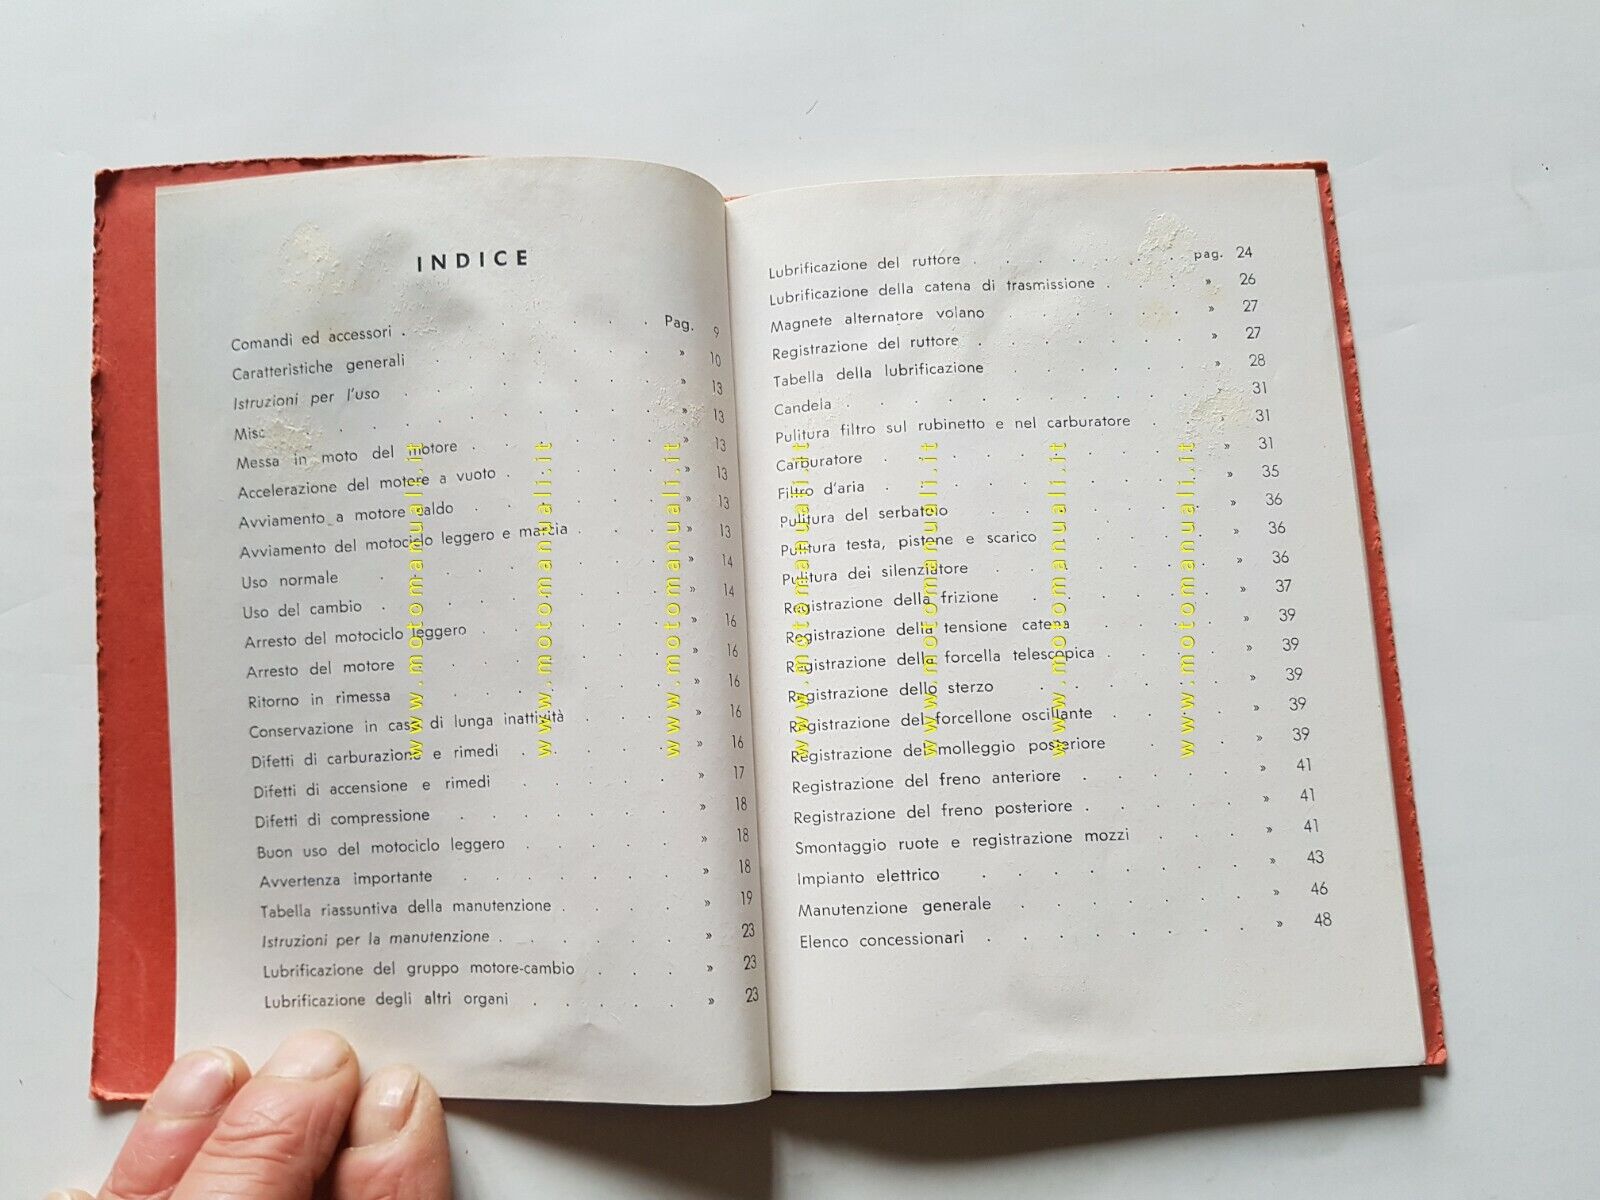 INDICE
Comandi ed accessori . . . . . . Pag. 9
Caratteristiche generali . . . . . . » 10
Istruzioni per l'uso . . . . . . » 13
. . . . . . » 13
Messa in moto del motore . . . . . . » 13
Accelerazione del motore a vuoto . . . . . » 13
Avviamento a motore caldo . . . . . . » 13
Avviamento del motociclo leggero e marcia . . . . » 13
Uso normale . . . . . . » 14
Uso del cambio . . . . . . » 14
Arresto del motociclo leggero . . . . . . » 16
Arresto del motore . . . . . . » 16
Ritorno in rimessa . . . . . . » 16
Conservazione in caso di lunga inattività . . . . » 16
Difetti di carburazione e rimedi . . . . . » 16
Difetti di accensione e rimedi . . . . . » 17
Difetti di compressione . . . . . . » 18
Buon uso del motociclo leggero . . . . . » 18
Avvertenza importante . . . . . . » 18
Tabella riassuntiva della manutenzione . . . . . » 19
Istruzioni per la manutenzione . . . . . . » 23
Lubrificazione del gruppo motore-cambio . . . » 23
Lubrificazione degli altri organi . . . . . » 23
Lubrificazione del ruttore . . . . . . pag. 24
Lubrificazione della catena di trasmissione . . . » 26
Magnete alternatore volano . . . . . . » 27
Registrazione del ruttore . . . . . . » 27
Tabella della lubrificazione . . . . . . » 28
Candela . . . . . . 31
Pulitura filtro sul rubinetto e nel carburatore . . 31
Carburatore . . . . . . » 31
Filtro d'aria . . . . . . » 35
Pulitura del serbatoio . . . . . . » 36
Pulitura testa, pistone e scarico . . . . . » 36
Pulitura dei silenziatore . . . . . . » 36
Registrazione della frizione . . . . . . » 37
Registrazione della tensione catena . . . . » 39
Registrazione della forcella telescopica . . . . » 39
Registrazione dello sterzo . . . . . » 39
Registrazione del forcellone oscillante . . . . » 39
Registrazione del molleggio posteriore . . . » 39
Registrazione del freno anteriore . . . . . » 41
Registrazione del freno posteriore . . . . . » 41
Smontaggio ruote e registrazione mozzi . . . » 41
Impianto elettrico . . . . . . » 43
Manutenzione generale . . . . . . » 46
Elenco concessionari . . . . . . » 48
www.motomanuali.it
www.motomanuali.it
www.motomanuali.it
www.motomanuali.it
www.motomanuali.it
www.motomanuali.it
www.motomanuali.it